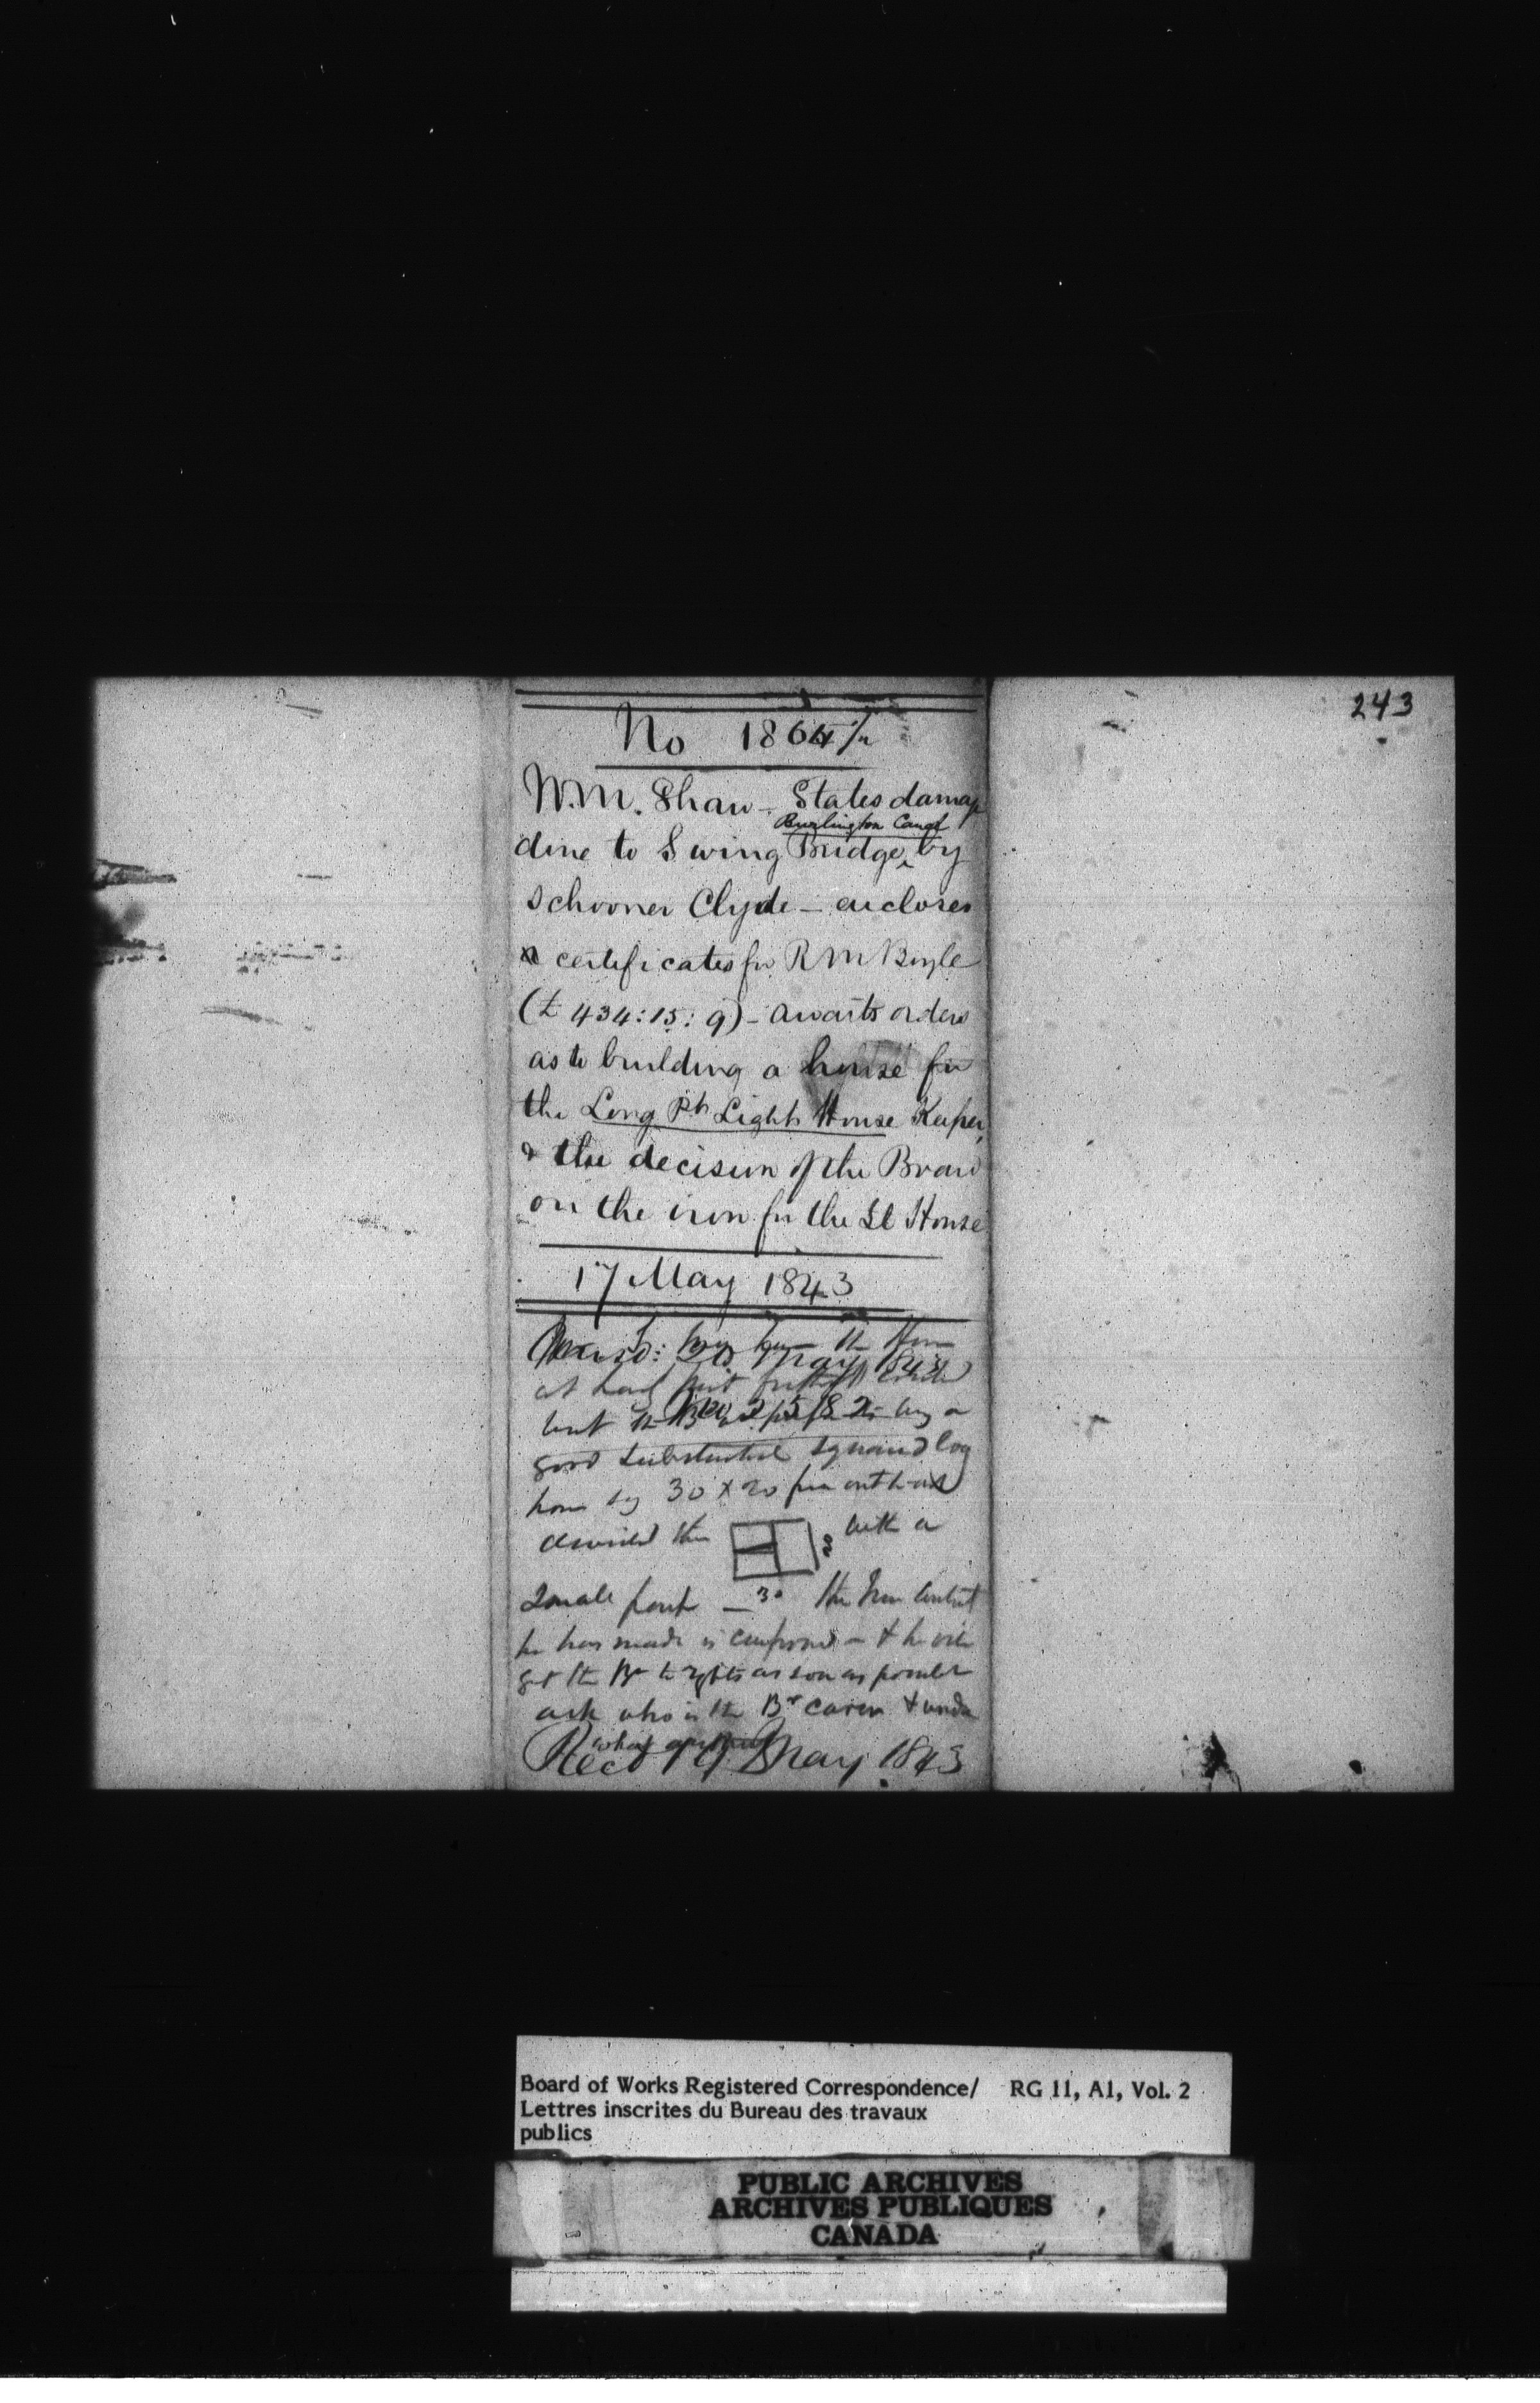 243
No 1864/
W.M. Shaw - States damage
done to Swing Bridge by
Burlington Canal
Schooner Clyde - encloses
certificates for R M Boyle
(£ 434:15:9) - awaits orders
as to building a house for
the Long Pt Light House Keeper,
& the decision of the Board
on the iron for the Lt House
17 May 1843
20 May 1843
but the
good substantial squared log
house 30 x 20
divided thus with a
20
small porch - 30 the Iron Contract
he has made is - & he will
get the Br to rights as soon as possible
ask who is the Br & under
what
Recd 19 May 1843
Board of Works Registered Correspondence/ RG 11, A1, Vol. 2
Lettres inscrites du Bureau des travaux
publics
PUBLIC ARCHIVES
ARCHIVES PUBLIQUES
CANADA